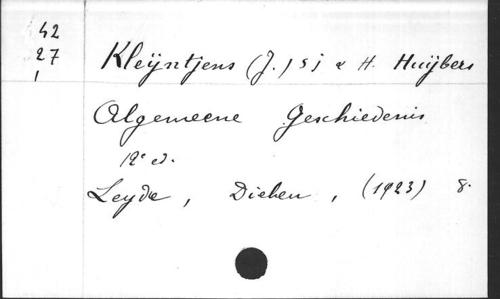 42
27
1
Kleÿntjens (J.) S j & H. Huÿbers
Algemeene Geschiedenis
12e ed.
Leyde, (1923) 8.